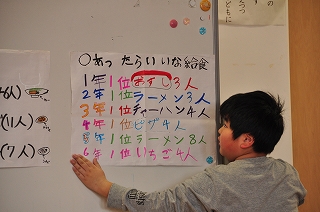 ○あったらいいな給食
1年1位おすし3人
2年1位ラーメン3人
3年1位チャーハン4人
4年1位ピザ4人
5年1位ラーメン8人
6年1位いちご4人
人)
(11人)
(7人)